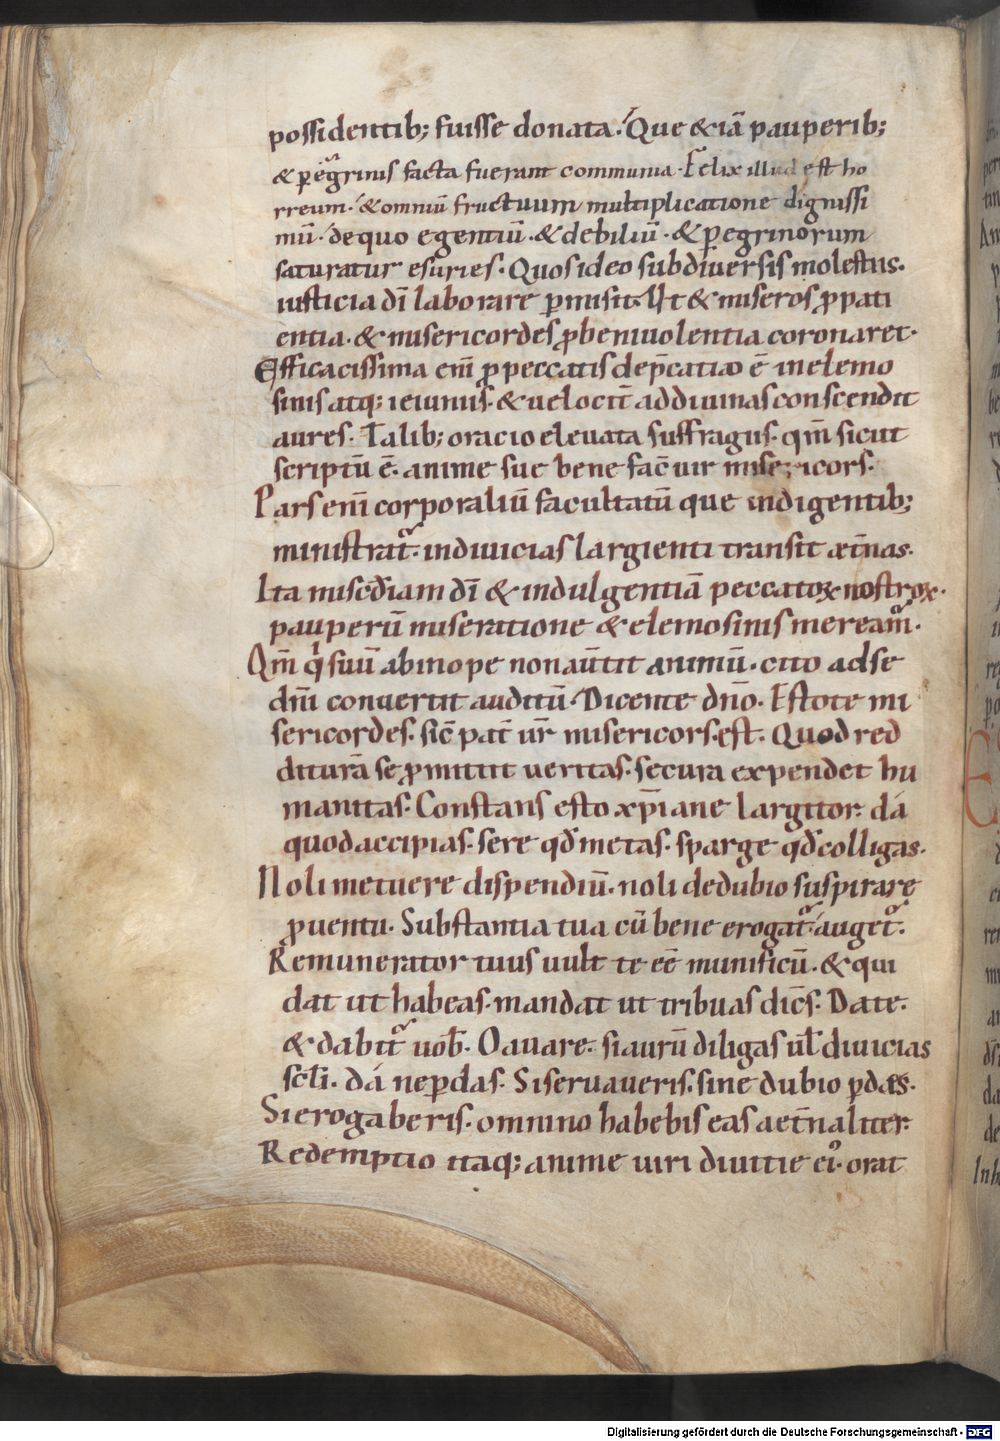 possidentib; fuisse donata. Que &iā pauperib;
& peregrinis facta fuerant communia. Felix illud est ho
rreum. & omniū fructuum multiplicatione dignissi
mū. de quo egentiū. & debiliū. & ꝑegrinorum
saturatur esuries. Quos ideo sub diversis molestiis.
iusticia dī laborare ꝑmisit. Ut & miseros ꝓ pati
entia. & misericordes ꝓ benivolentia coronaret.
Efficacissima eni̅ ꝓ peccatis dep̄catio ē in elemo
sinis atq; ieiuniis. & velociꝰ ad divinas conscendit
aures. Talib; oracio elevata suffragiis. qm̄ sicut
scriptū ē. anime sue bene fac̄ vir misericors.
Pars eni̅ corporaliū facultatū que indigentib;
ministrat᷑. in divicias largienti transit æt̄nas.
Ita misc̄diam dī & indulgentiā peccatoꝝ nostroꝝ.
pauperū miseratione & elemosinis meream᷑.
Qm̄ qͥ suū ab inope non av̄tit animū. cito ad se
dīn̄ convertit auditū. Dicente dn̄o. Estote mi
sericordes. sic̄ pat̄ vr̄ misericors est. Quod red
dituram se ꝓmittit veritas. secura expendet hu
manitas. Constans esto xp̄iane largitor. dá
quod accipias. sere qd̄ metas. sparge qd̄ colligas.
Noli metuere dispendiū. noli de dubio suspirare
ꝓventu. Substantia tua cū bene erogat᷑. auget᷑.
Remunerator tuus vult te eē munificū. & qui
dat ut habeas. mandat ut tribuas dic̄s. Date.
& dabit᷑ vob̄. O avare. si aurū diligas vl̄ divicias
sc̄li. dá ne ꝑdas. Si servaveris. sine dubio ꝑdes.
Si erogaberis. omnino habebis eas aet̄naliter.
Redemptio itaq; anime viri divitie eiꝰ. orat
Digitalisierung gefördert durch die Deutsche Forschungsgemeinschaft - DFG